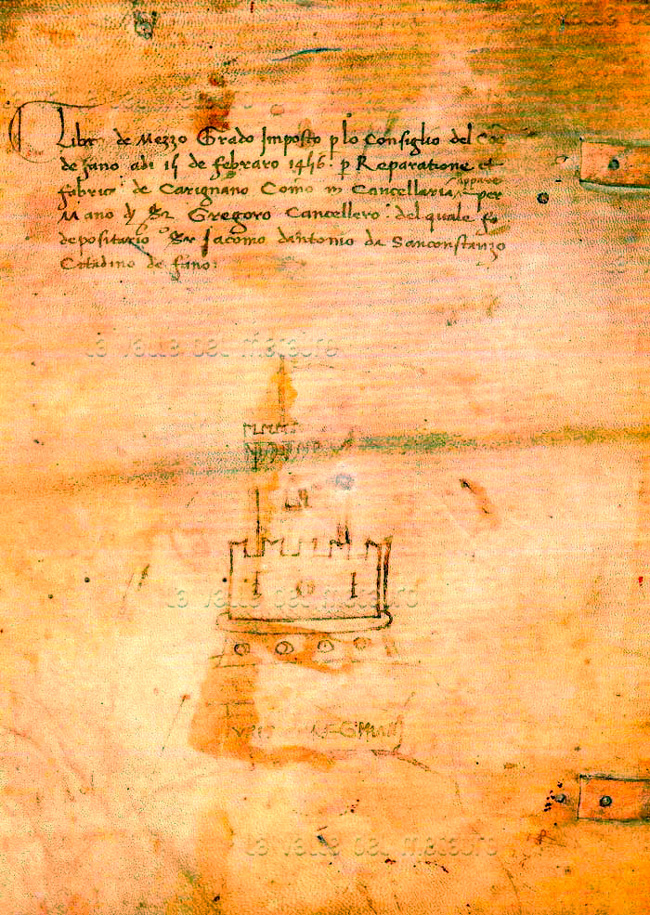 la valle del metauro
Libro de Mezzo Grado Imposto p lo Consiglio del Coe
de fano adi 15 de febraro 1456 p Reparatione et
fabrica de Carignano Como in Cancellaria appare per
Mano d Ser Gregoro Cancellero: del quale fo
depositario Ser Jacomo dantonio da Sanconstanzo
Citadino de fano:
la valle del metauro
la valle del metauro
la valle del metauro